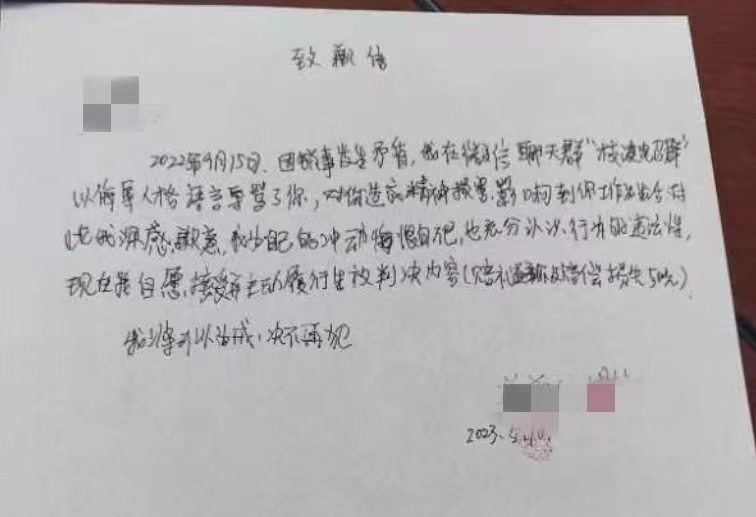 致歉信
2022年9月15日,因琐事发生矛盾,我在微信聊天群“核酸
以侮辱人格语言辱骂了你,对你造成精神损害,影响到你工作生活,对
此我深感歉意,我为自己的冲动悔恨自己,也充分认识行为的违法性,
现在我自愿接受并主动履行生效判决内容(赔礼道歉及赔偿损失50元)。
我将引以为戒,决不再犯
2023.